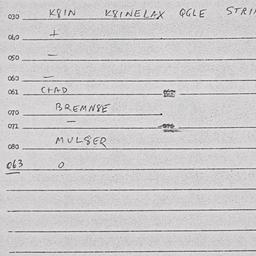 030 K8IN K8INELAX QGLE STRI
040 +
050 —
060 —
061 CHAD
070 BREMN8E
071 —
080 MUL8ER
063 O